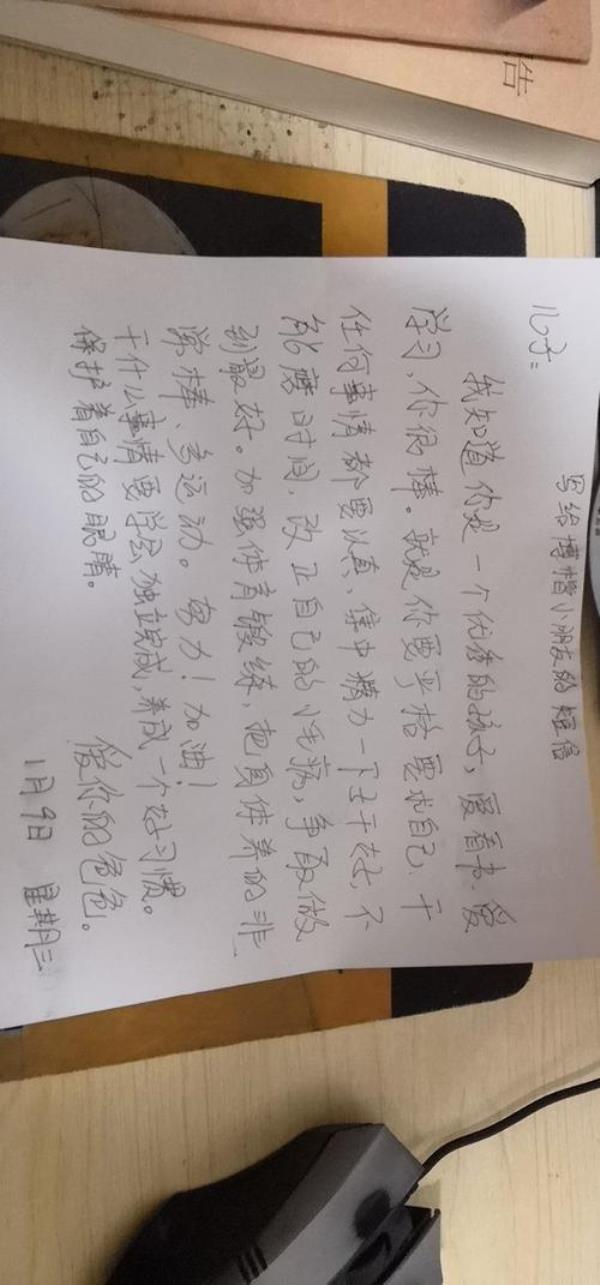 告
写给博楷小朋友的短信
儿子:
我知道你是一个优秀的孩子,爱看书、爱
学习、你很棒。就是你要严格要求自己、干
任何事情都要认真、集中精力一下子干好、不
能磨时间,改正自己的小毛病,争取做
到最好。加强体育锻练,把身体养的非
常棒、多运动。努力!加油!
干什么事情要学会独立完成,养成一个好习惯。
保护着自己的眼睛。
爱你的爸爸。
1月9日 星期三